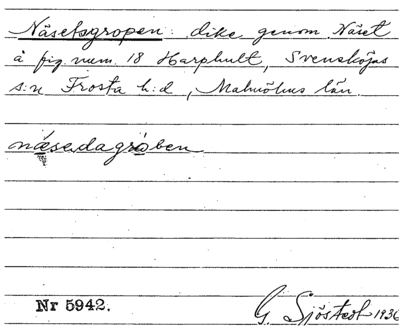 Näsetsgropen: dike genom Näset
å fig. num. 18 Harphult, Svensköjas
s:n Frosta h:d, Malmöhus län
næsedagrʹωben
Nr 5942.
G. Sjöstedt 1936